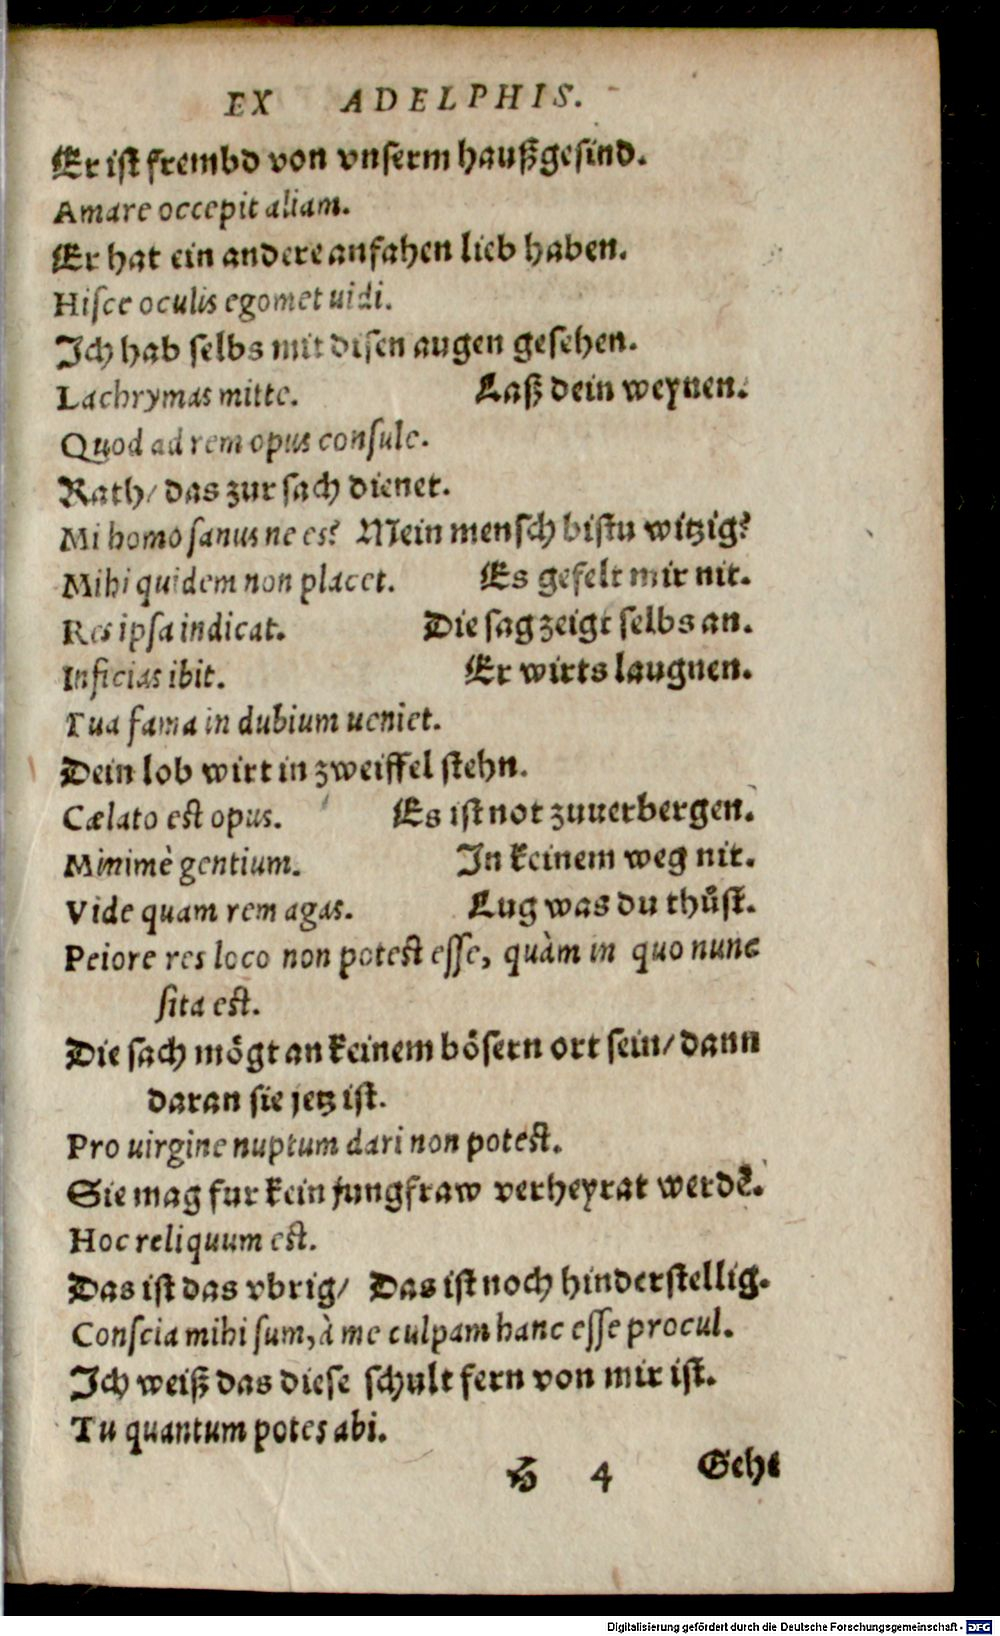 EX ADELPHIS.
Er ist frembd von vnserm haußgesind.
Amare occepit aliam.
Er hat ein andere anfahen lieb haben.
Hisce oculis egomet uidi.
Ich hab selbs mit disen augen gesehen.
Lachrymas mitte. Laß dein weynen.
Quod ad rem opus consule.
Rath/ das zur sach dienet.
Mi homo sanus ne es? Mein mensch bistu witzig?
Mihi quidem non placet. Es gefelt mir nit.
Res ipsa indicat. Die sag zeigt selbs an.
Inficias ibit. Er wirts laugnen.
Tua fama in dubium ueniet.
Dein lob wirt in zweiffel stehn.
Cælato est opus. Es ist not zuuerbergen.
Minimè gentium. In keinem weg nit.
Vide quam rem agas. Lug was du thůst.
Peiore res loco non potest esse, quàm in quo nunc
sita est.
Die sach mögt an keinem bösern ort sein/ dann
daran sie jetz ist.
Pro uirgine nuptum dari non potest.
Sie mag fur kein jungfraw verheyrat werdē.
Hoc reliquum est.
Das ist das vbrig/ Das ist noch hinderstellig.
Conscia mihi sum, à me culpam hanc esse procul.
Ich weiß das diese schult fern von mir ist.
Tu quantum potes abi.
H 4 Gehe
Digitalisierung gefördert durch die Deutsche Forschungsgemeinschaft - DFG